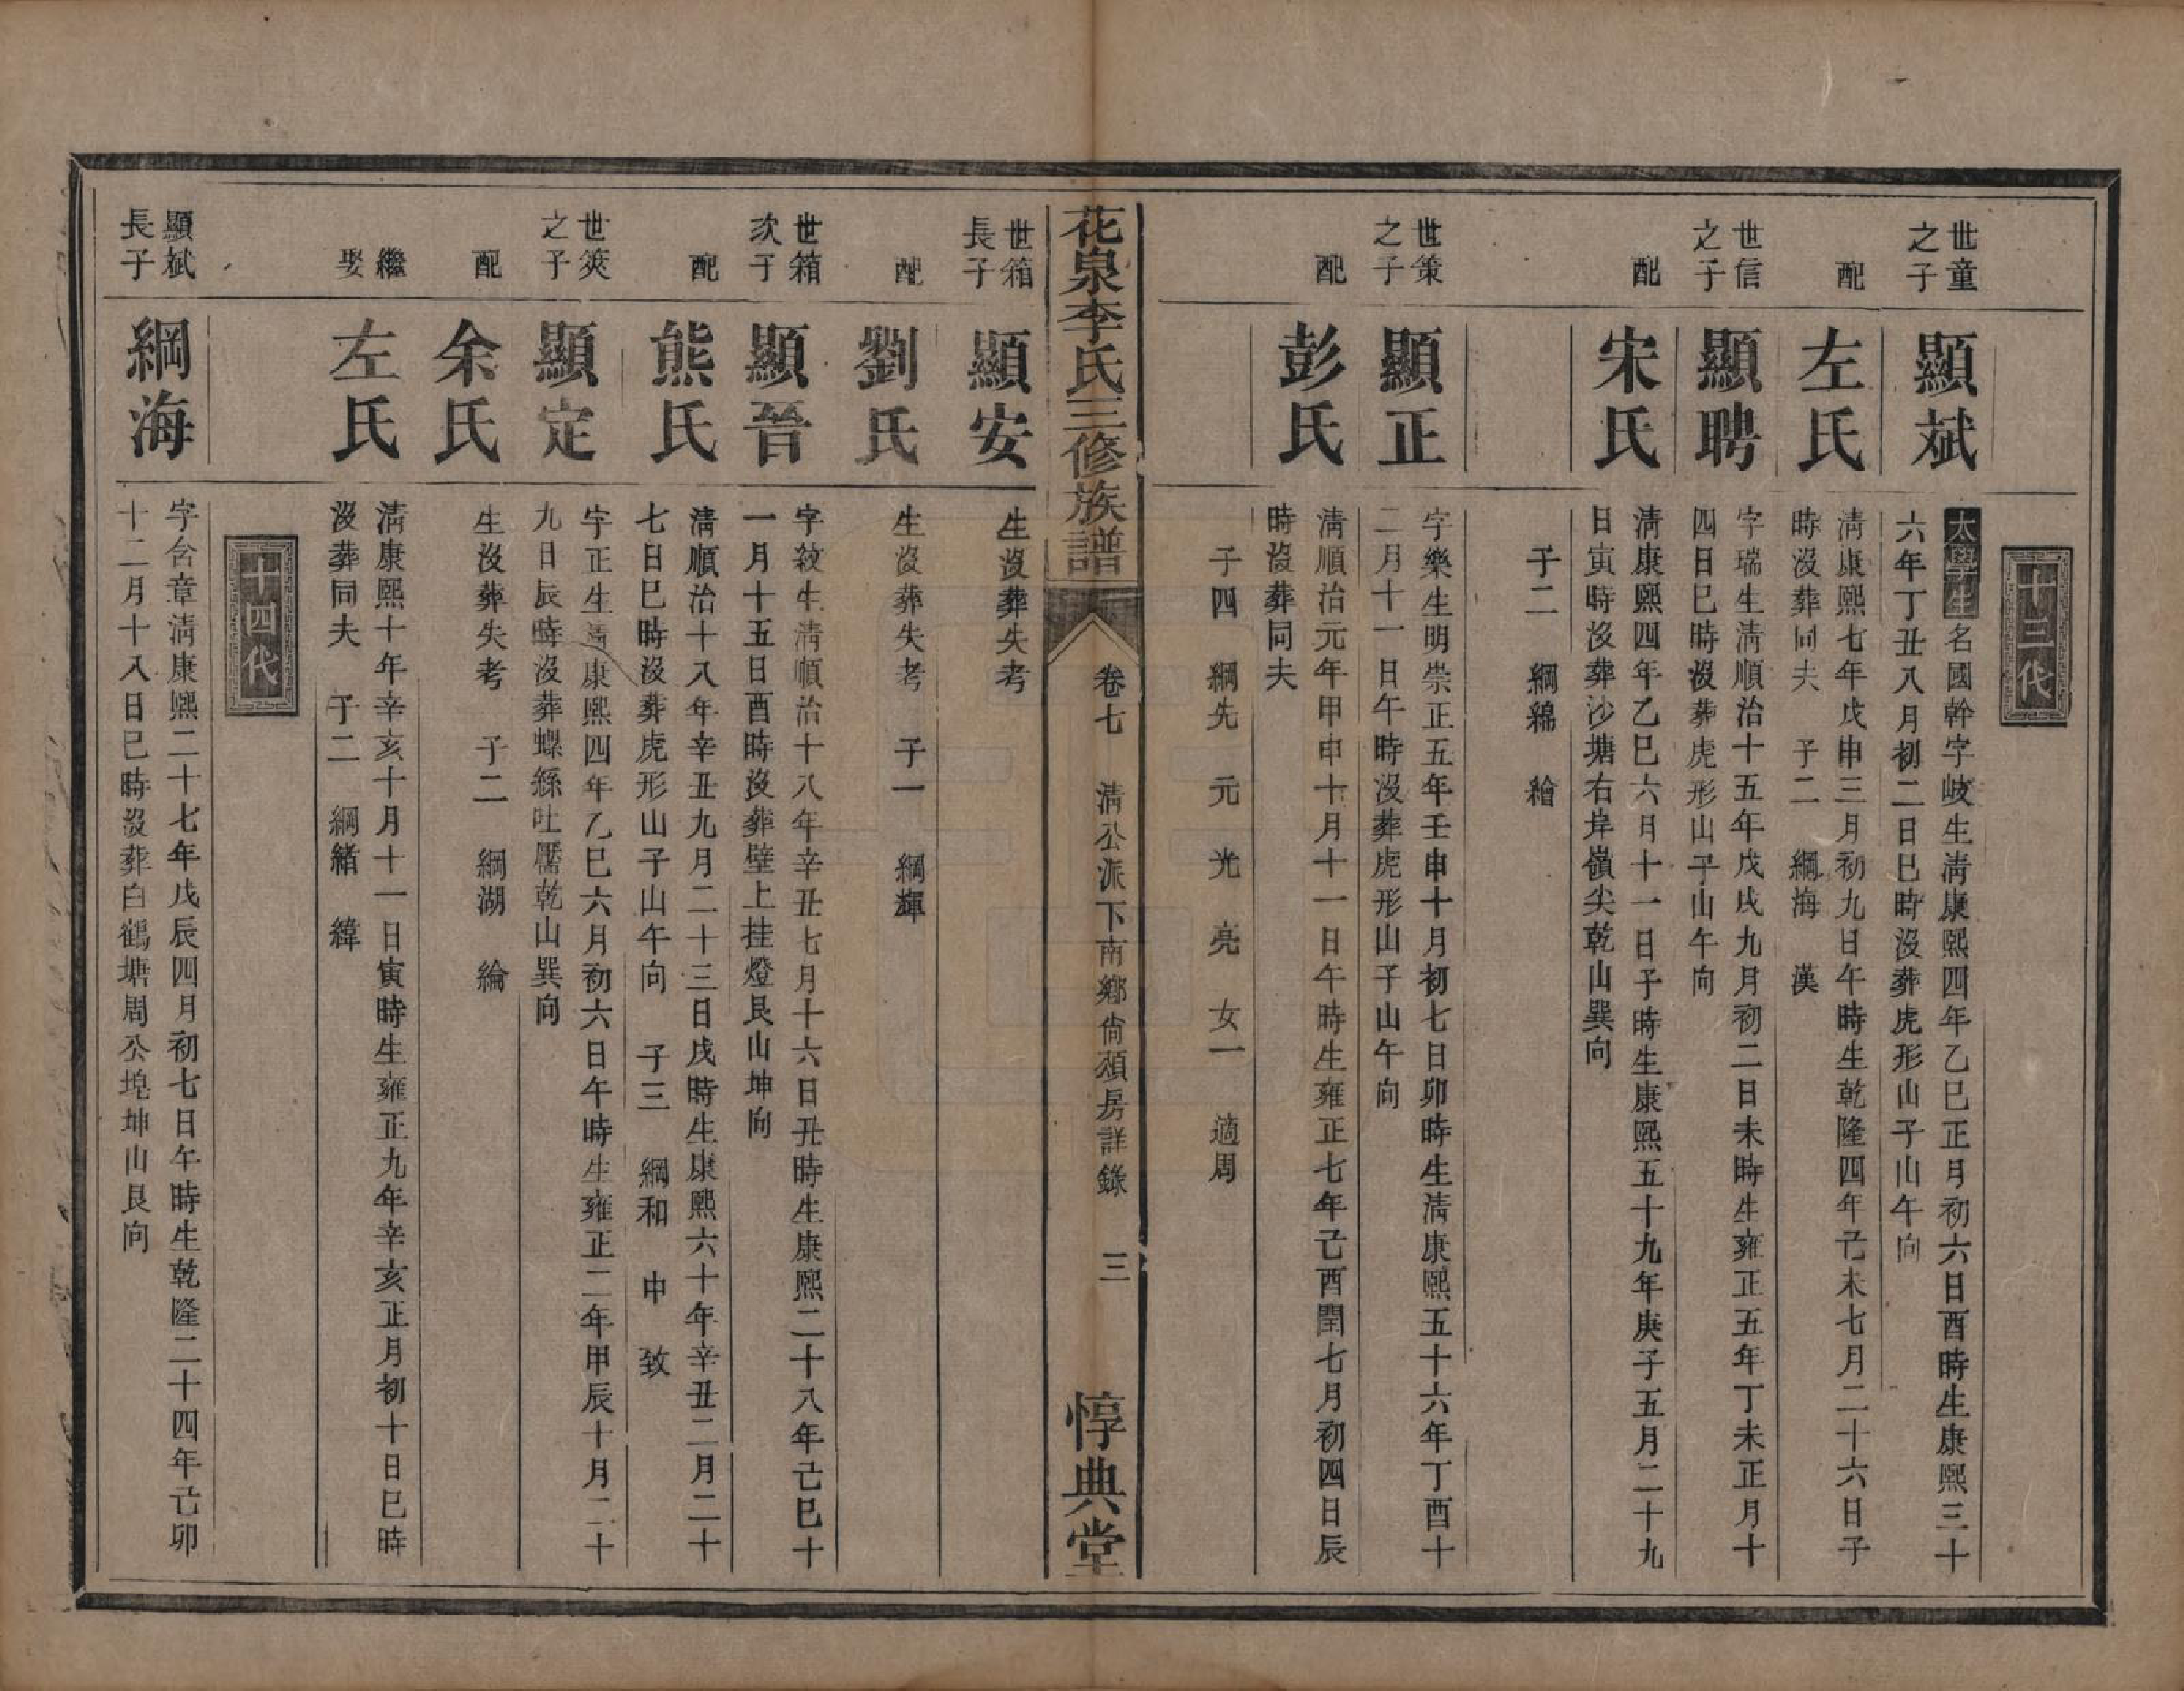 十三代
世童之子
顯斌
太學生名國幹字岐生清康熙四年乙巳正月初六日酉時生康熙三十
六年丁丑八月初二日巳時沒葬虎形山子山午向
配
左氏
清康熙七年戊申三月初九日午時生乾隆四年己未七月二十六日子
時沒葬同夫 子二 綱海 漢
世信之子
顯聘
字瑞生清順治十五年戊戌九月初二日未時生雍正五年丁未正月十
四日巳時沒葬虎形山子山午向
配
宋氏
清康熙四年乙巳六月十一日子時生康熙五十九年庚子五月二十九
日寅時沒葬沙塘右岸嶺尖乾山巽向
子二 綱綿 繪
世策之子
顯正
字樂生明崇正五年壬申十月初七日卯時生清康熙五十六年丁酉十
二月十一日午時沒葬虎形山子山午向
配
彭氏
清順治元年甲申十月十一日午時生雍正七年己酉閏七月初四日辰
時沒葬同夫
子四 綱先 元 光 亮 女一 適周
花泉李氏三修族譜
卷七 清公派下南鄉尙頎房詳錄 三
惇典堂
世箱長子
顯安
生沒葬失考
配
劉氏
生沒葬失考 子一 綱輝
世箱次子
顯晉
字敍生清順治十八年辛丑七月十六日丑時生康熙二十八年己巳十
一月十五日酉時沒葬壁上挂燈艮山坤向
配
熊氏
清順治十八年辛丑九月二十三日戌時生康熙六十年辛丑二月二十
七日巳時沒葬虎形山子山午向 子三 綱和 中 致
世筴之子
顯定
字正生清康熙四年乙巳六月初六日午時生雍正二年甲辰十月二十
九日辰時沒葬螺絲吐靨乾山巽向
配
余氏
生沒葬失考 子二 綱湖 綸
繼娶
左氏
清康熙十年辛亥十月十一日寅時生雍正九年辛亥正月初十日巳時
沒葬同夫 子二 綱緒 緯
十四代
顯斌長子
綱海
字含章清康熙二十七年戊辰四月初七日午時生乾隆二十四年己卯
十二月十八日巳時沒葬白鶴塘周公堍坤山艮向